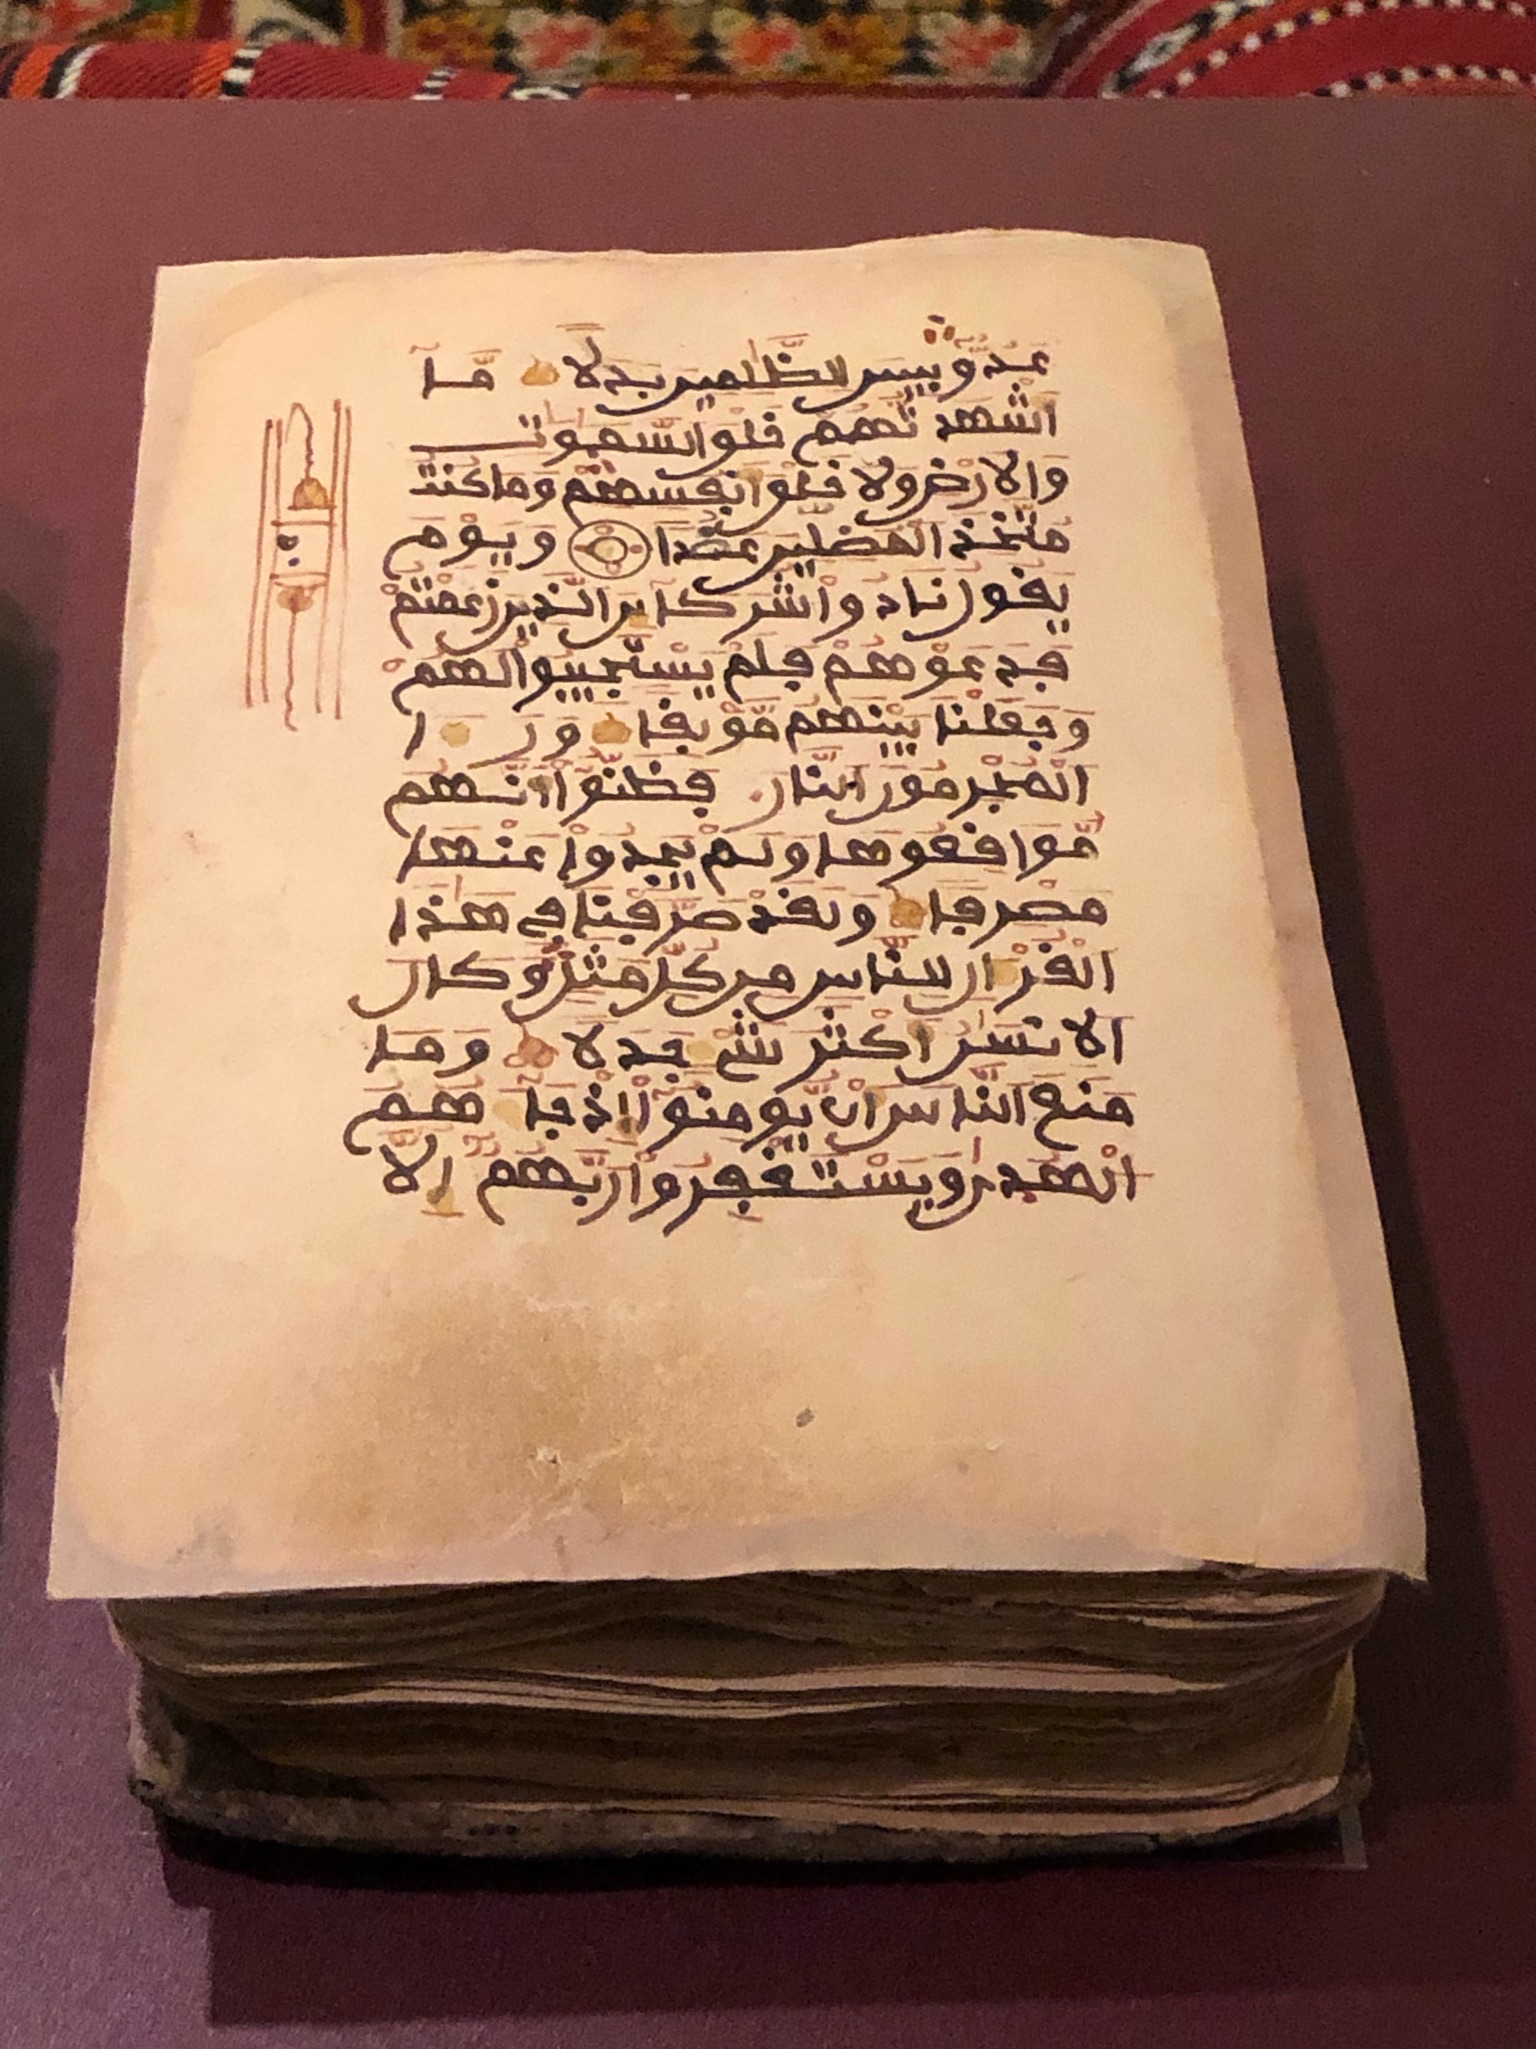 عدو بيس للظلمين بدلا ما
اشهدتهم خلو السموت
والارض ولا خلو انفسهم وما كنت
متخذ المضلين عضدا ويوم
يقول نادوا شركاءي الذين زعمتم
فدعوهم فلم يستجيبوا لهم
وجعلنا بينهم موبقا ور ا
المجرمون النار فظنوا انهم
مواقعوها ولم يجدوا عنها
مصرفا ولقد صرفنا في هذا
القرءان للناس من كل مثل وكان
الانسن اكثر شيء جدلا وما
منع الناس ان يومنوا اذ جاءهم
الهدى ويستغفروا ربهم الا